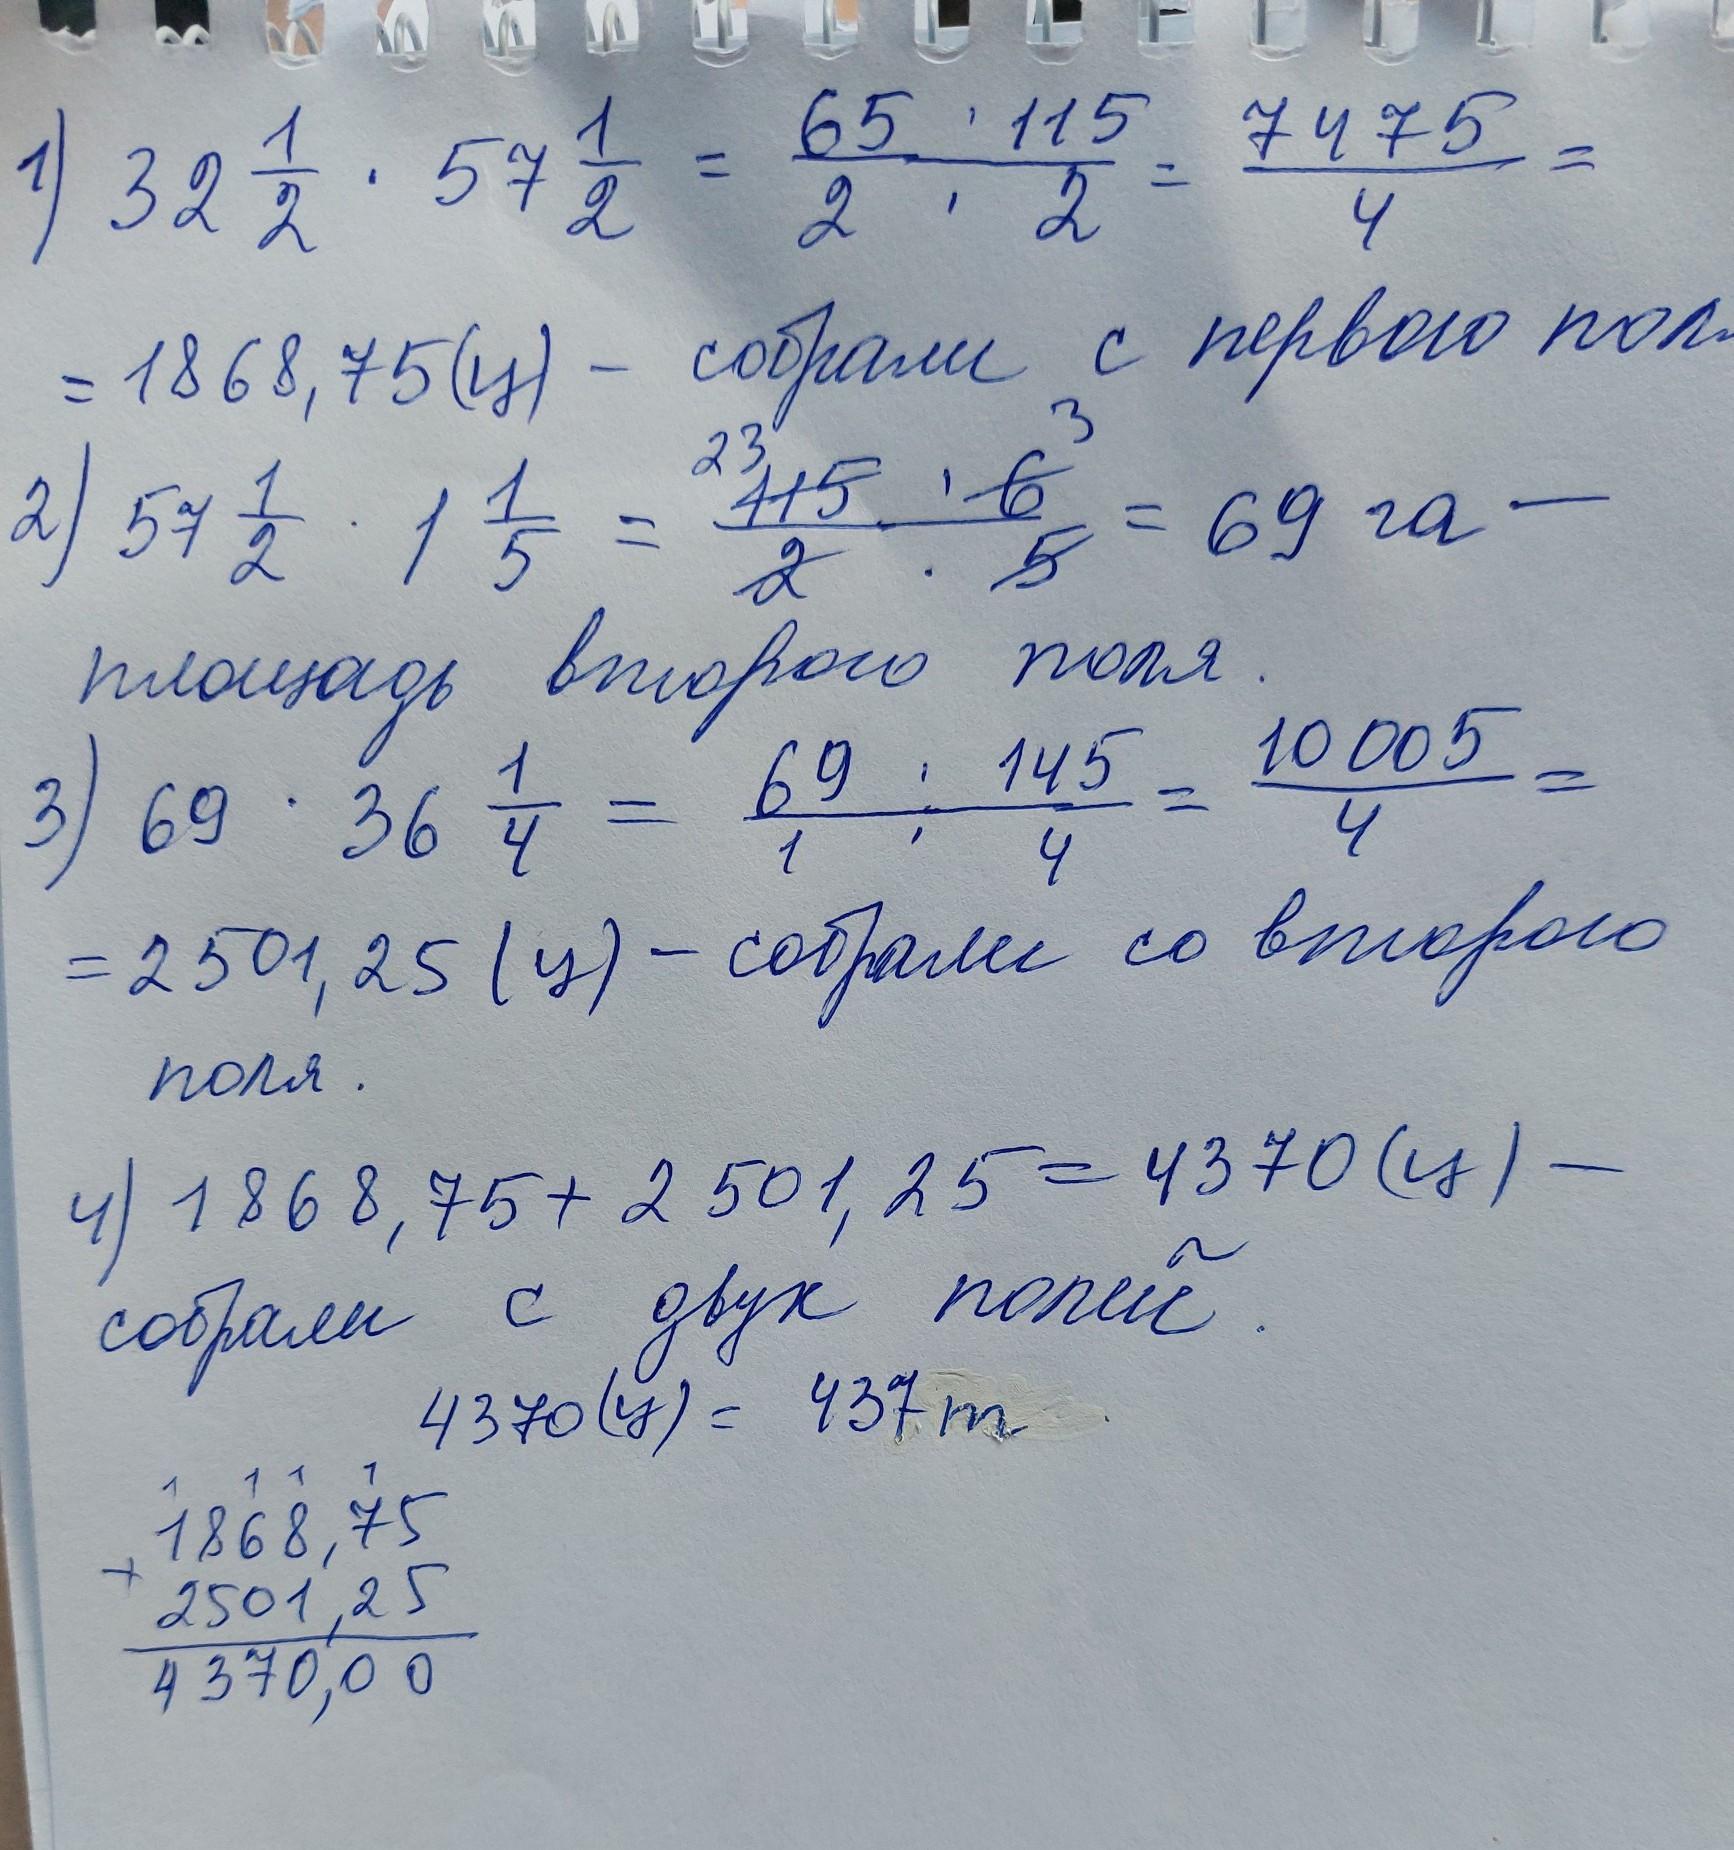 1) 32 1/2 · 57 1/2 = 65 · 115 / 2 · 2 = 7475/4 =
= 1868,75 (ц) – собрали с первого пол
2) 57 1/2 · 1 1/5 = 23 115 · 6 3 / 2 · 5 = 69 га —
площадь второго поля.
3) 69 · 36 1/4 = 69 · 145 / 1 · 4 = 10005/4 =
= 2501,25 (ц) – собрали со второго
поля.
4) 1868,75 + 2501,25 = 4370 (ц) –
собрали с двух полей.
4370 (ц) = 437 т
1 1 1 1
1868,75
+
2501,25
4370,00